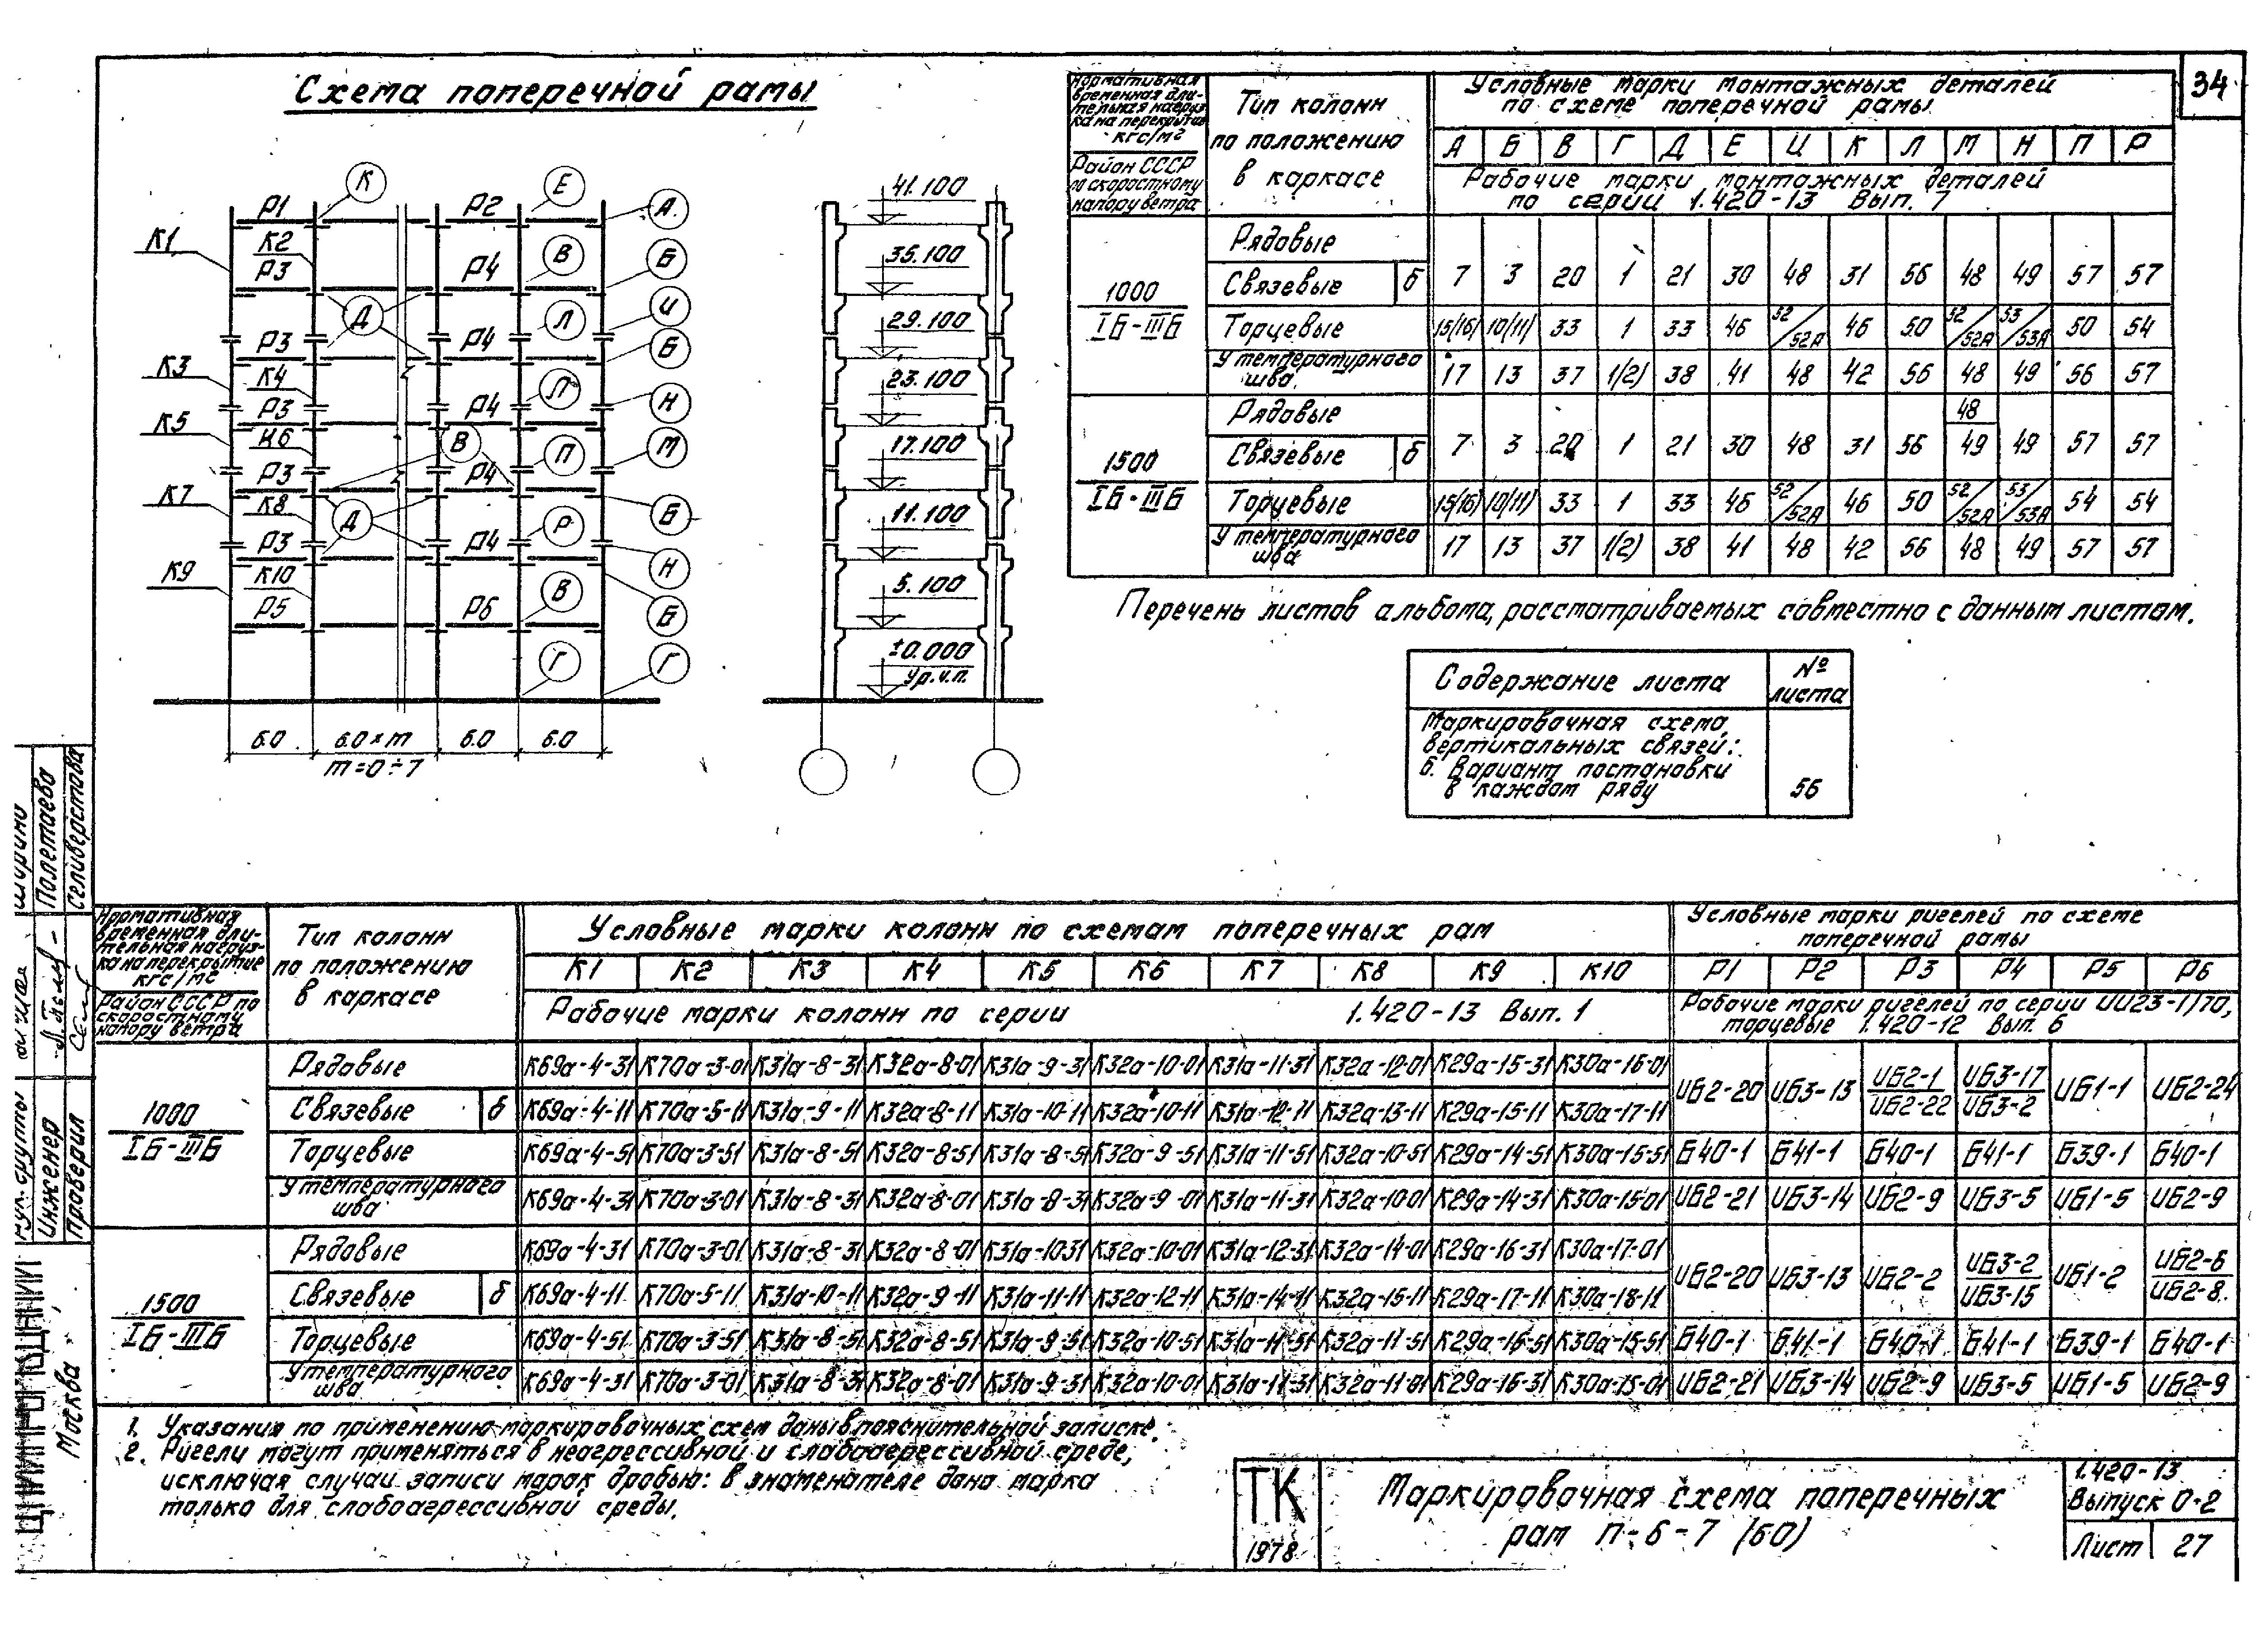 34
Схема поперечной рамы
К
Е
А
Р1
Р2
К1
К2
Р3
Р4
В
Б
Д
Л
И
Р3
Р4
Б
К3
К4
Р3
Р4
Н
К5
К6
В
П
М
Р3
Р4
К7
К8
Д
Р
Б
Р3
Р4
Н
К9
К10
В
Р5
Р6
Б
Г
Г
6.0
6.0×m
6.0
6.0
m=0÷7
41.100
35.100
29.100
23.100
17.100
11.100
5.100
±0.000
Ур.ч.п.
Нормативная временная длительная нагрузка на перекрытие кгс/м²
Район СССР по скоростному напору ветра
Тип колонн по положению в каркасе
Условные марки монтажных деталей по схеме поперечной рамы
А Б В Г Д Е И К Л М Н П Р
Рабочие марки монтажных деталей по серии 1.420-13 Вып. 7
1000
IБ-IIIБ
Рядовые
Связевые б 7 3 20 1 21 30 48 31 56 48 49 57 57
Торцевые 15/16/ 10/11/ 33 1 33 46 52/52А 46 50 52/52А 53/53А 50 54
У температурного шва 17 13 37 1/2/ 38 41 48 42 56 48 49 56 57
1500
IБ-IIIБ
Рядовые 48
Связевые б 7 3 20 1 21 30 48 31 56 49 49 57 57
Торцевые 15/16/ 10/11/ 33 1 33 46 52/52А 46 50 52/52А 53/53А 54 54
У температурного шва 17 13 37 1(2) 38 41 48 42 56 48 49 57 57
Перечень листов альбома, рассматриваемых совместно с данным листом.
Содержание листа № листа
Маркировочная схема
вертикальных связей:
б. Вариант постановки
в каждом ряду 56
Нормативная временная длительная нагрузка на перекрытие кгс/м²
Район СССР по скоростному напору ветра
Тип колонн по положению в каркасе
Условные марки колонн по схемам поперечных рам
Условные марки ригелей по схеме поперечной рамы
К1 К2 К3 К4 К5 К6 К7 К8 К9 К10 Р1 Р2 Р3 Р4 Р5 Р6
Рабочие марки колонн по серии 1.420-13 Вып. 1
Рабочие марки ригелей по серии ИИ23-1/70, торцевые 1.420-12 Вып. 6
1000
IБ-IIIБ
Рядовые К69а-4-31 К70а-3-01 К31а-8-31 К32а-8-01 К31а-9-31 К32а-10-01 К31а-11-31 К32а-12-01 К29а-15-31 К30а-16-01
ИБ2-20 ИБ3-13 ИБ2-1/ИБ2-22 ИБ3-17/ИБ3-2 ИБ1-1 ИБ2-24
Связевые б К69а-4-11 К70а-5-11 К31а-9-11 К32а-8-11 К31а-10-11 К32а-10-11 К31а-12-11 К32а-13-11 К29а-15-11 К30а-17-11
Торцевые К69а-4-51 К70а-3-51 К31а-8-51 К32а-8-51 К31а-8-51 К32а-9-51 К31а-11-51 К32а-10-51 К29а-14-51 К30а-15-51 Б40-1 Б41-1 Б40-1 Б41-1 Б39-1 Б40-1
У температурного шва К69а-4-31 К70а-3-01 К31а-8-31 К32а-8-01 К31а-8-31 К32а-9-01 К31а-11-31 К32а-10-01 К29а-14-31 К30а-15-01 ИБ2-21 ИБ3-14 ИБ2-9 ИБ3-5 ИБ1-5 ИБ2-9
1500
IБ-IIIБ
Рядовые К69а-4-31 К70а-3-01 К31а-8-31 К32а-8-01 К31а-10-31 К32а-10-01 К31а-12-31 К32а-14-01 К29а-16-31 К30а-17-01
ИБ2-20 ИБ3-13 ИБ2-2 ИБ3-2/ИБ3-15 ИБ1-2 ИБ2-6/ИБ2-8
Связевые б К69а-4-11 К70а-5-11 К31а-10-11 К32а-9-11 К31а-11-11 К32а-12-11 К31а-14-11 К32а-15-11 К29а-17-11 К30а-18-11
Торцевые К69а-4-51 К70а-3-51 К31а-8-51 К32а-8-51 К31а-9-51 К32а-10-51 К31а-11-51 К32а-11-51 К29а-16-51 К30а-15-51 Б40-1 Б41-1 Б40-1 Б41-1 Б39-1 Б40-1
У температурного шва К69а-4-31 К70а-3-01 К31а-8-31 К32а-8-01 К31а-9-31 К32а-10-01 К31а-11-31 К32а-11-01 К29а-16-31 К30а-15-01 ИБ2-21 ИБ3-14 ИБ2-9 ИБ3-5 ИБ1-5 ИБ2-9
1. Указания по применению маркировочных схем даны в пояснительной записке.
2. Ригели могут применяться в неагрессивной и слабоагрессивной среде,
исключая случаи записи марок дробью: в знаменателе дана марка
только для слабоагрессивной среды.
ТК
1978
Маркировочная схема поперечных
рам п-6-7 (60)
1.420-13
Выпуск 0-2
Лист 27
Полетаева
Селиверстова
Рук. группы
Инженер
Проверил
Москва